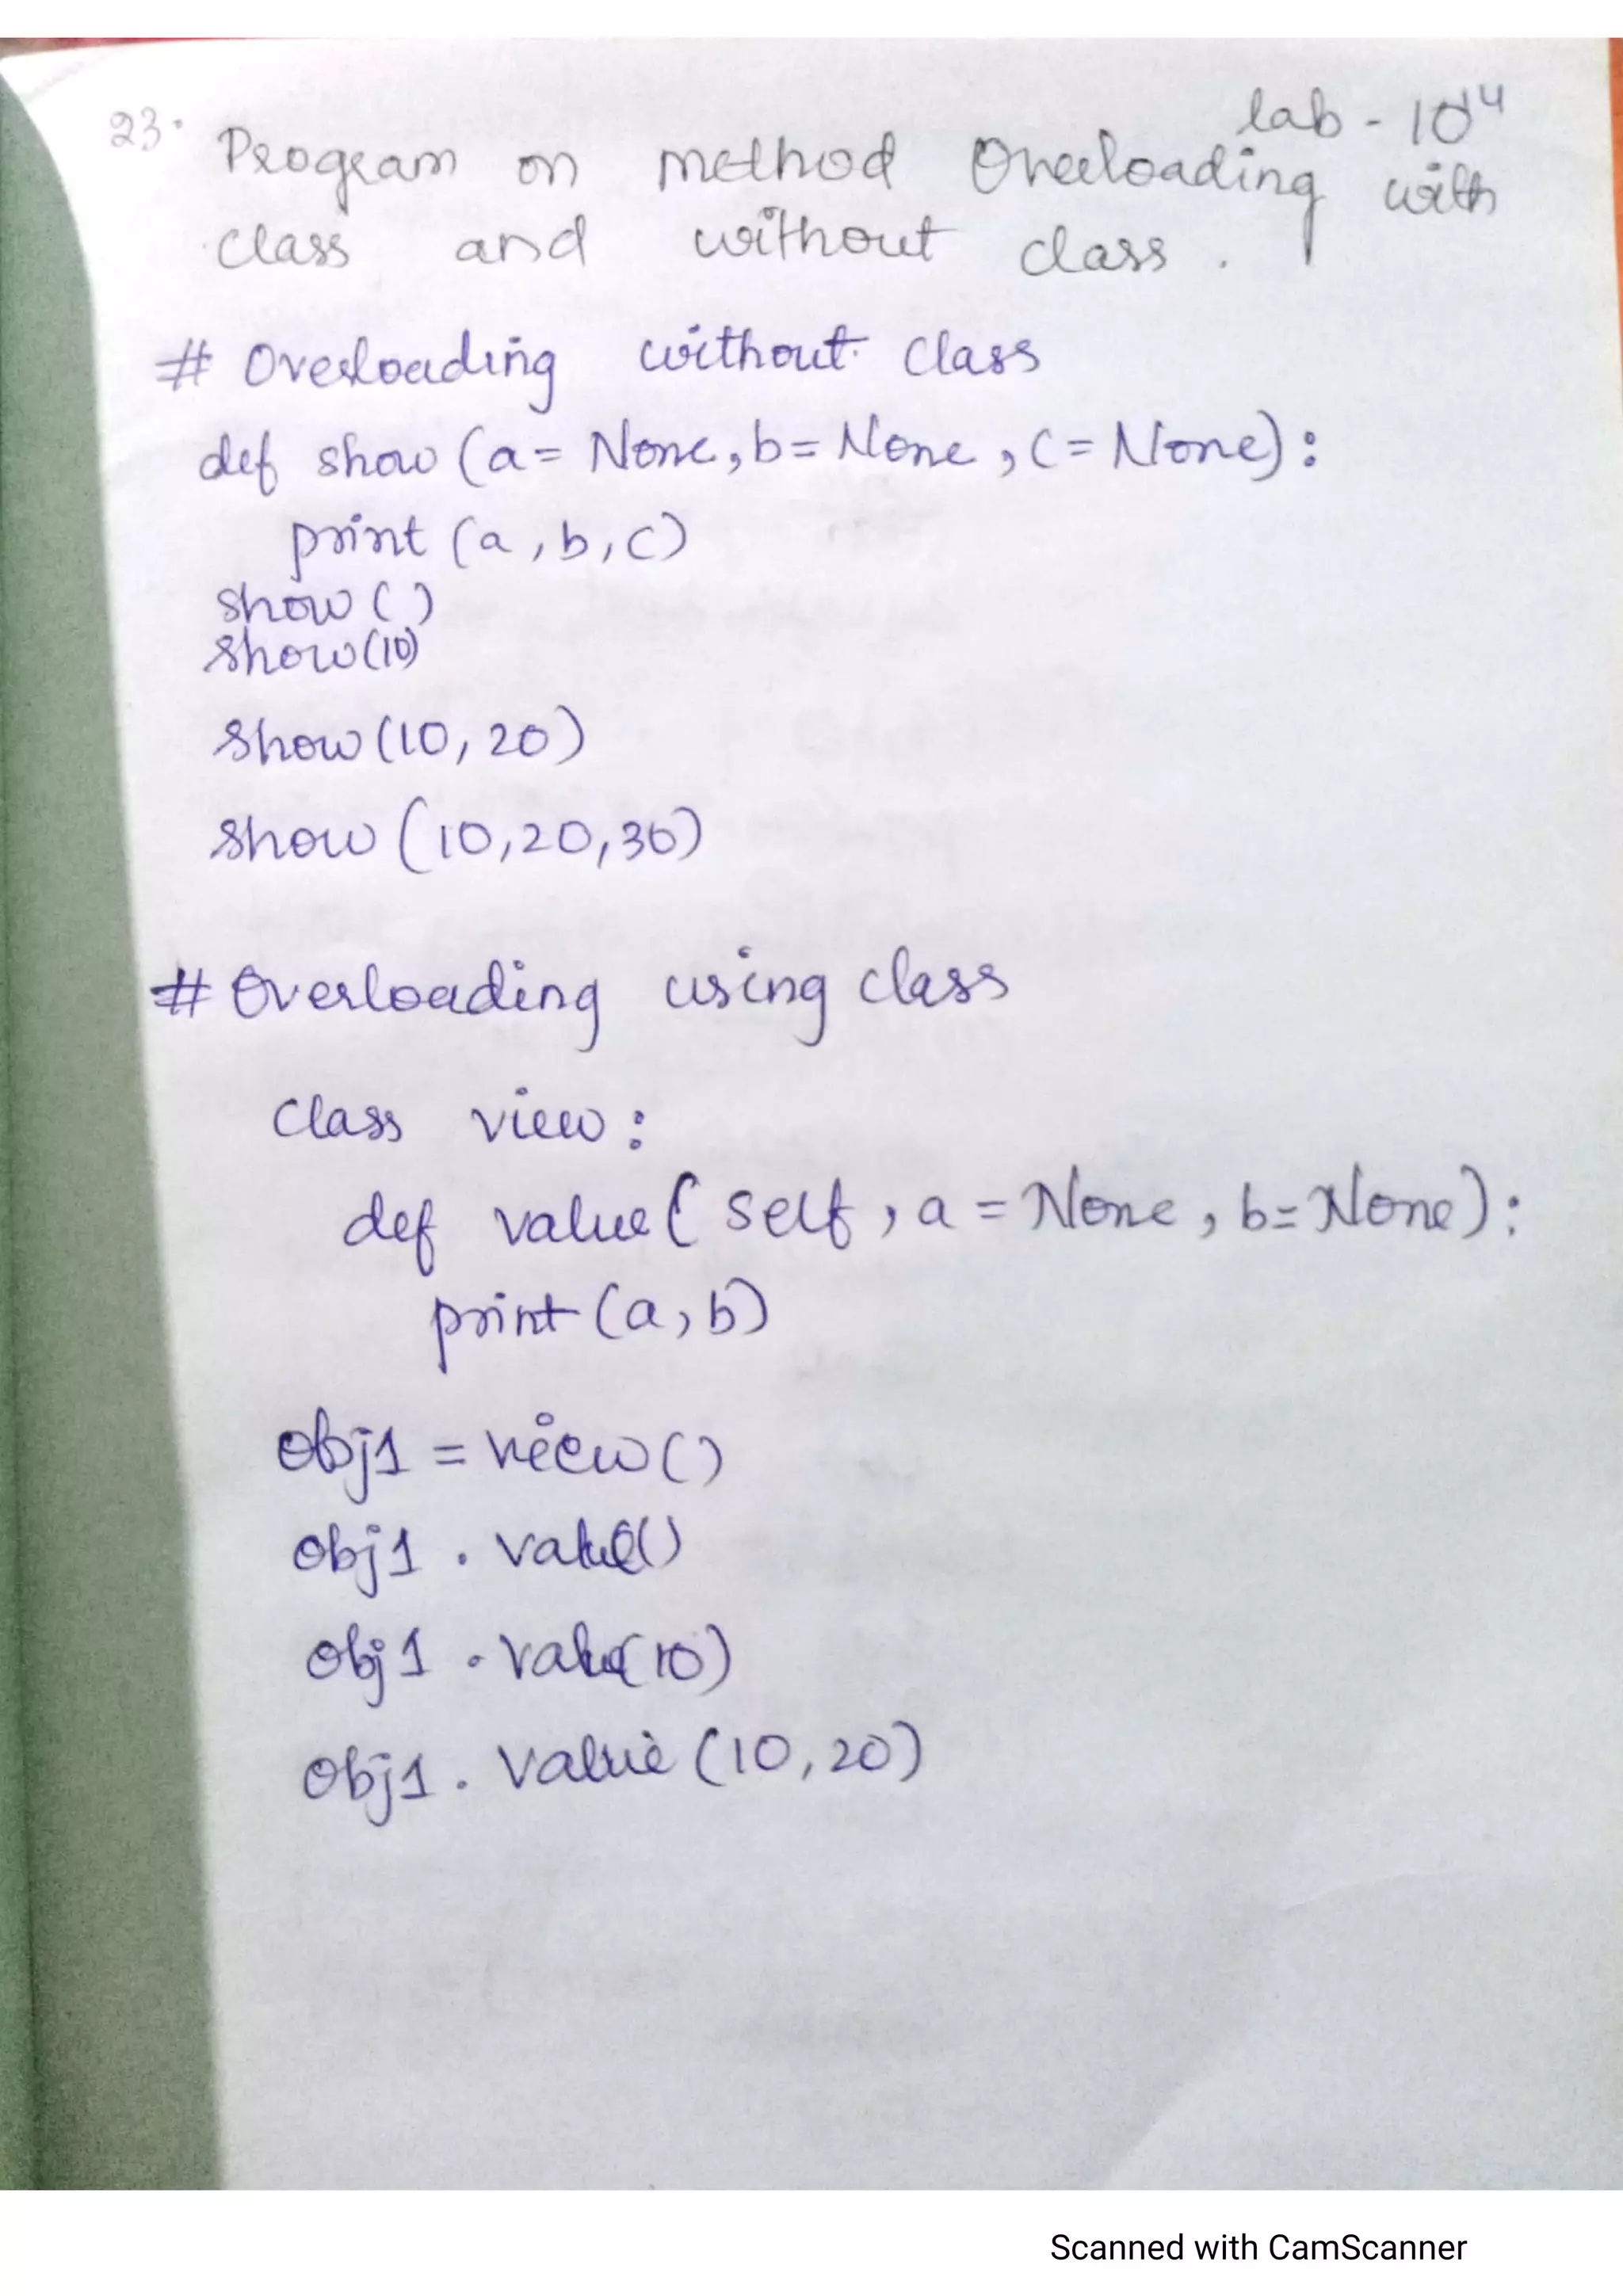 lab - 10
23. Program on method Overloading with
class and without class.
# Overloading without class
def show (a = None, b = None, c = None):
print (a, b, c)
show ()
show(10)
show(10, 20)
show (10, 20, 30)
# Overloading using class
class view:
def value( self, a = None, b = None):
print (a, b)
obj1 = view()
obj1 . value()
obj1 . value(10)
obj1 . value (10, 20)
Scanned with CamScanner